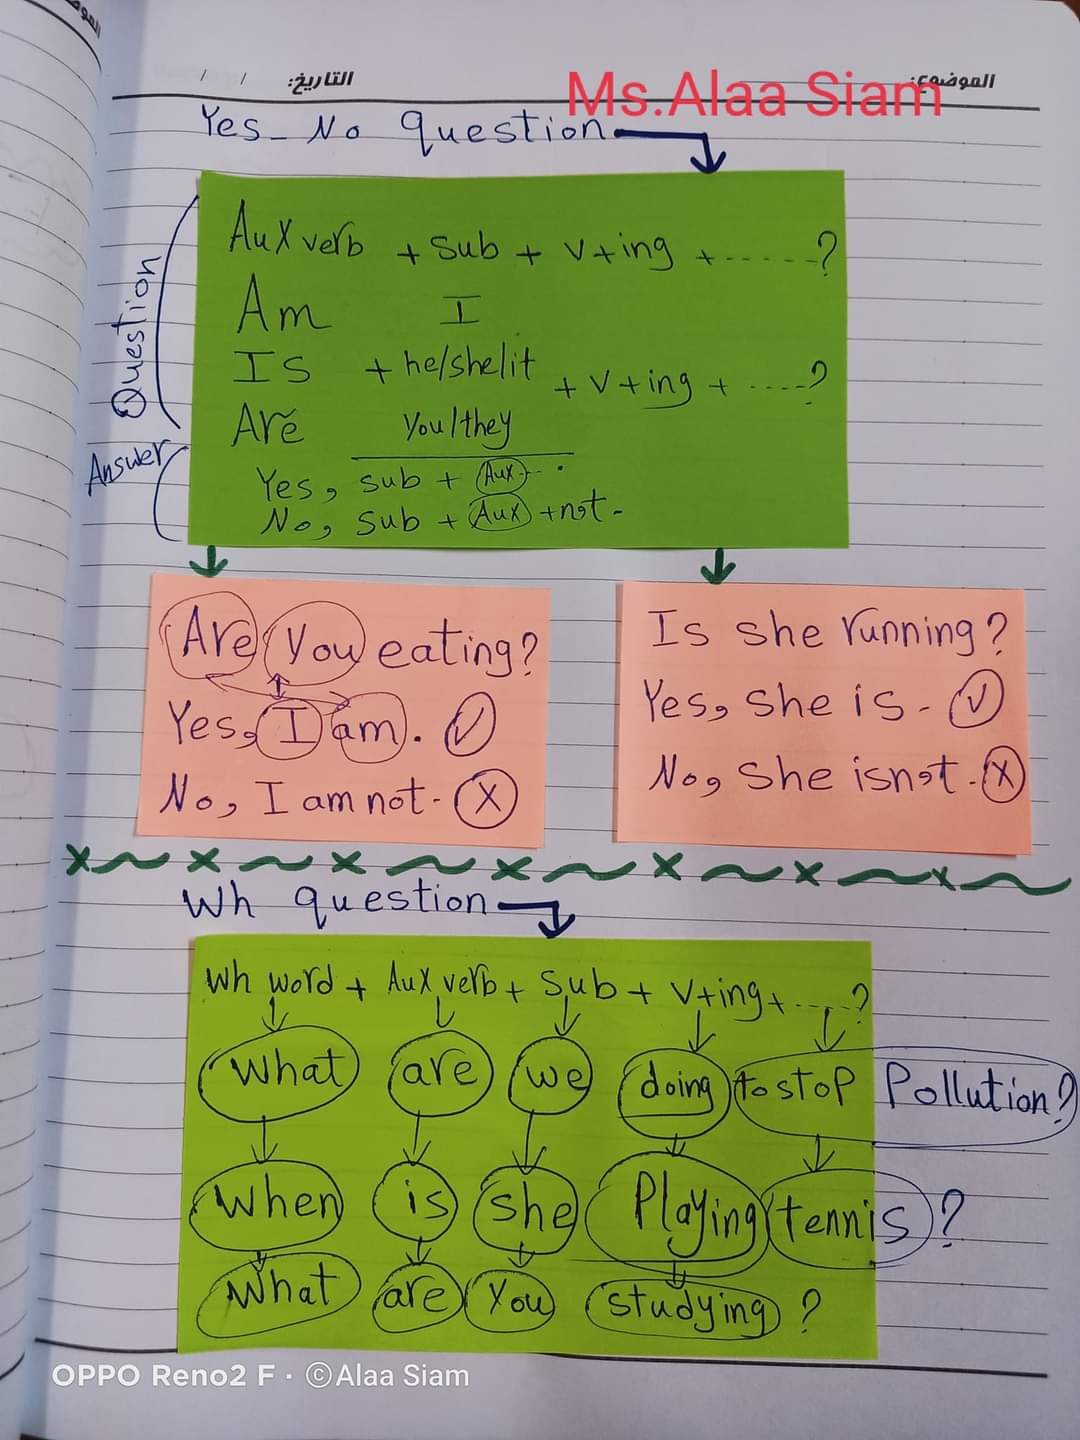 الموضوع:
التاريخ: / /
Ms.Alaa Siam
Yes_No question
Question
Aux verb + sub + v+ing + ......?
Am I
Is + he/she/it + v+ing + ....?
Are you/they
Answer
Yes, sub + Aux....
No, sub + Aux + not.
Are you eating?
Yes, I am. ✓
No, I am not. X
Is she running?
Yes, she is. ✓
No, she isnot. X
Wh question
Wh word + Aux verb + sub + v+ing + ....?
What are we doing to stop Pollution?
When is she Playing tennis?
What are you studying?
OPPO Reno2 F · ©Alaa Siam